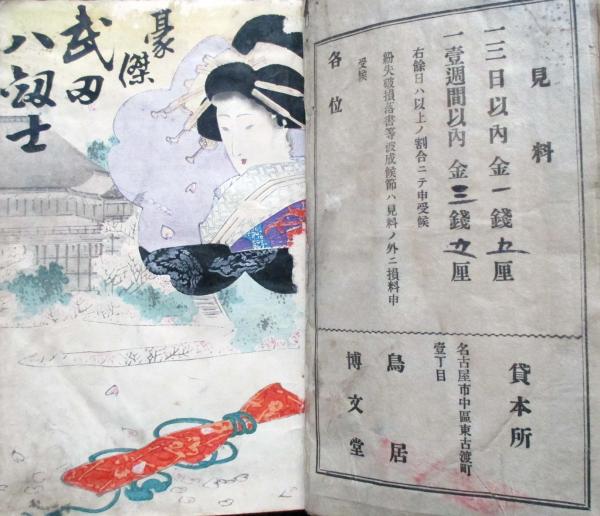 見料
一三日以內 金一錢五厘
一壹週間以內 金三錢九厘
右餘日ハ以上ノ割合ニテ申受候
紛失破損落書等被成候節ハ見料ノ外ニ損料申
受候
各位
貸本所
名古屋市中區東古渡町
壹丁目
鳥居
博文堂
豪傑
武田
八劔士